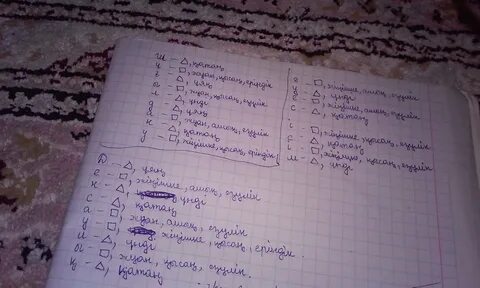 ш – △, қатаң
ұ – □, жуан, қысаң, еріндік
– △, ұяң
ы – □, жуан, қысаң, езулік
– △, үнді
д – △, ұяң
– □, жуан, ашық, езулік
– △, қатаң
у – □, жіңішке, қысаң, еріндік
– □, жіңішке, ашық, езулік
– △, үнді
е – □, жіңішке, ашық, езулік
с – △, қатаң
і – □, жіңішке, қысаң, езулік
с – △, қатаң
і – □, жіңішке, қысаң, езулік
м – △, үнді
Д – △, ұяң
е – □, жіңішке, ашық, езулік
н – △, үнді
с – △, қатаң
а – □, жуан, ашық, езулік
у – □, жіңішке, қысаң, еріндік
л – △, үнді
ы – □, жуан, қысаң, езулік
қ – △, қатаң